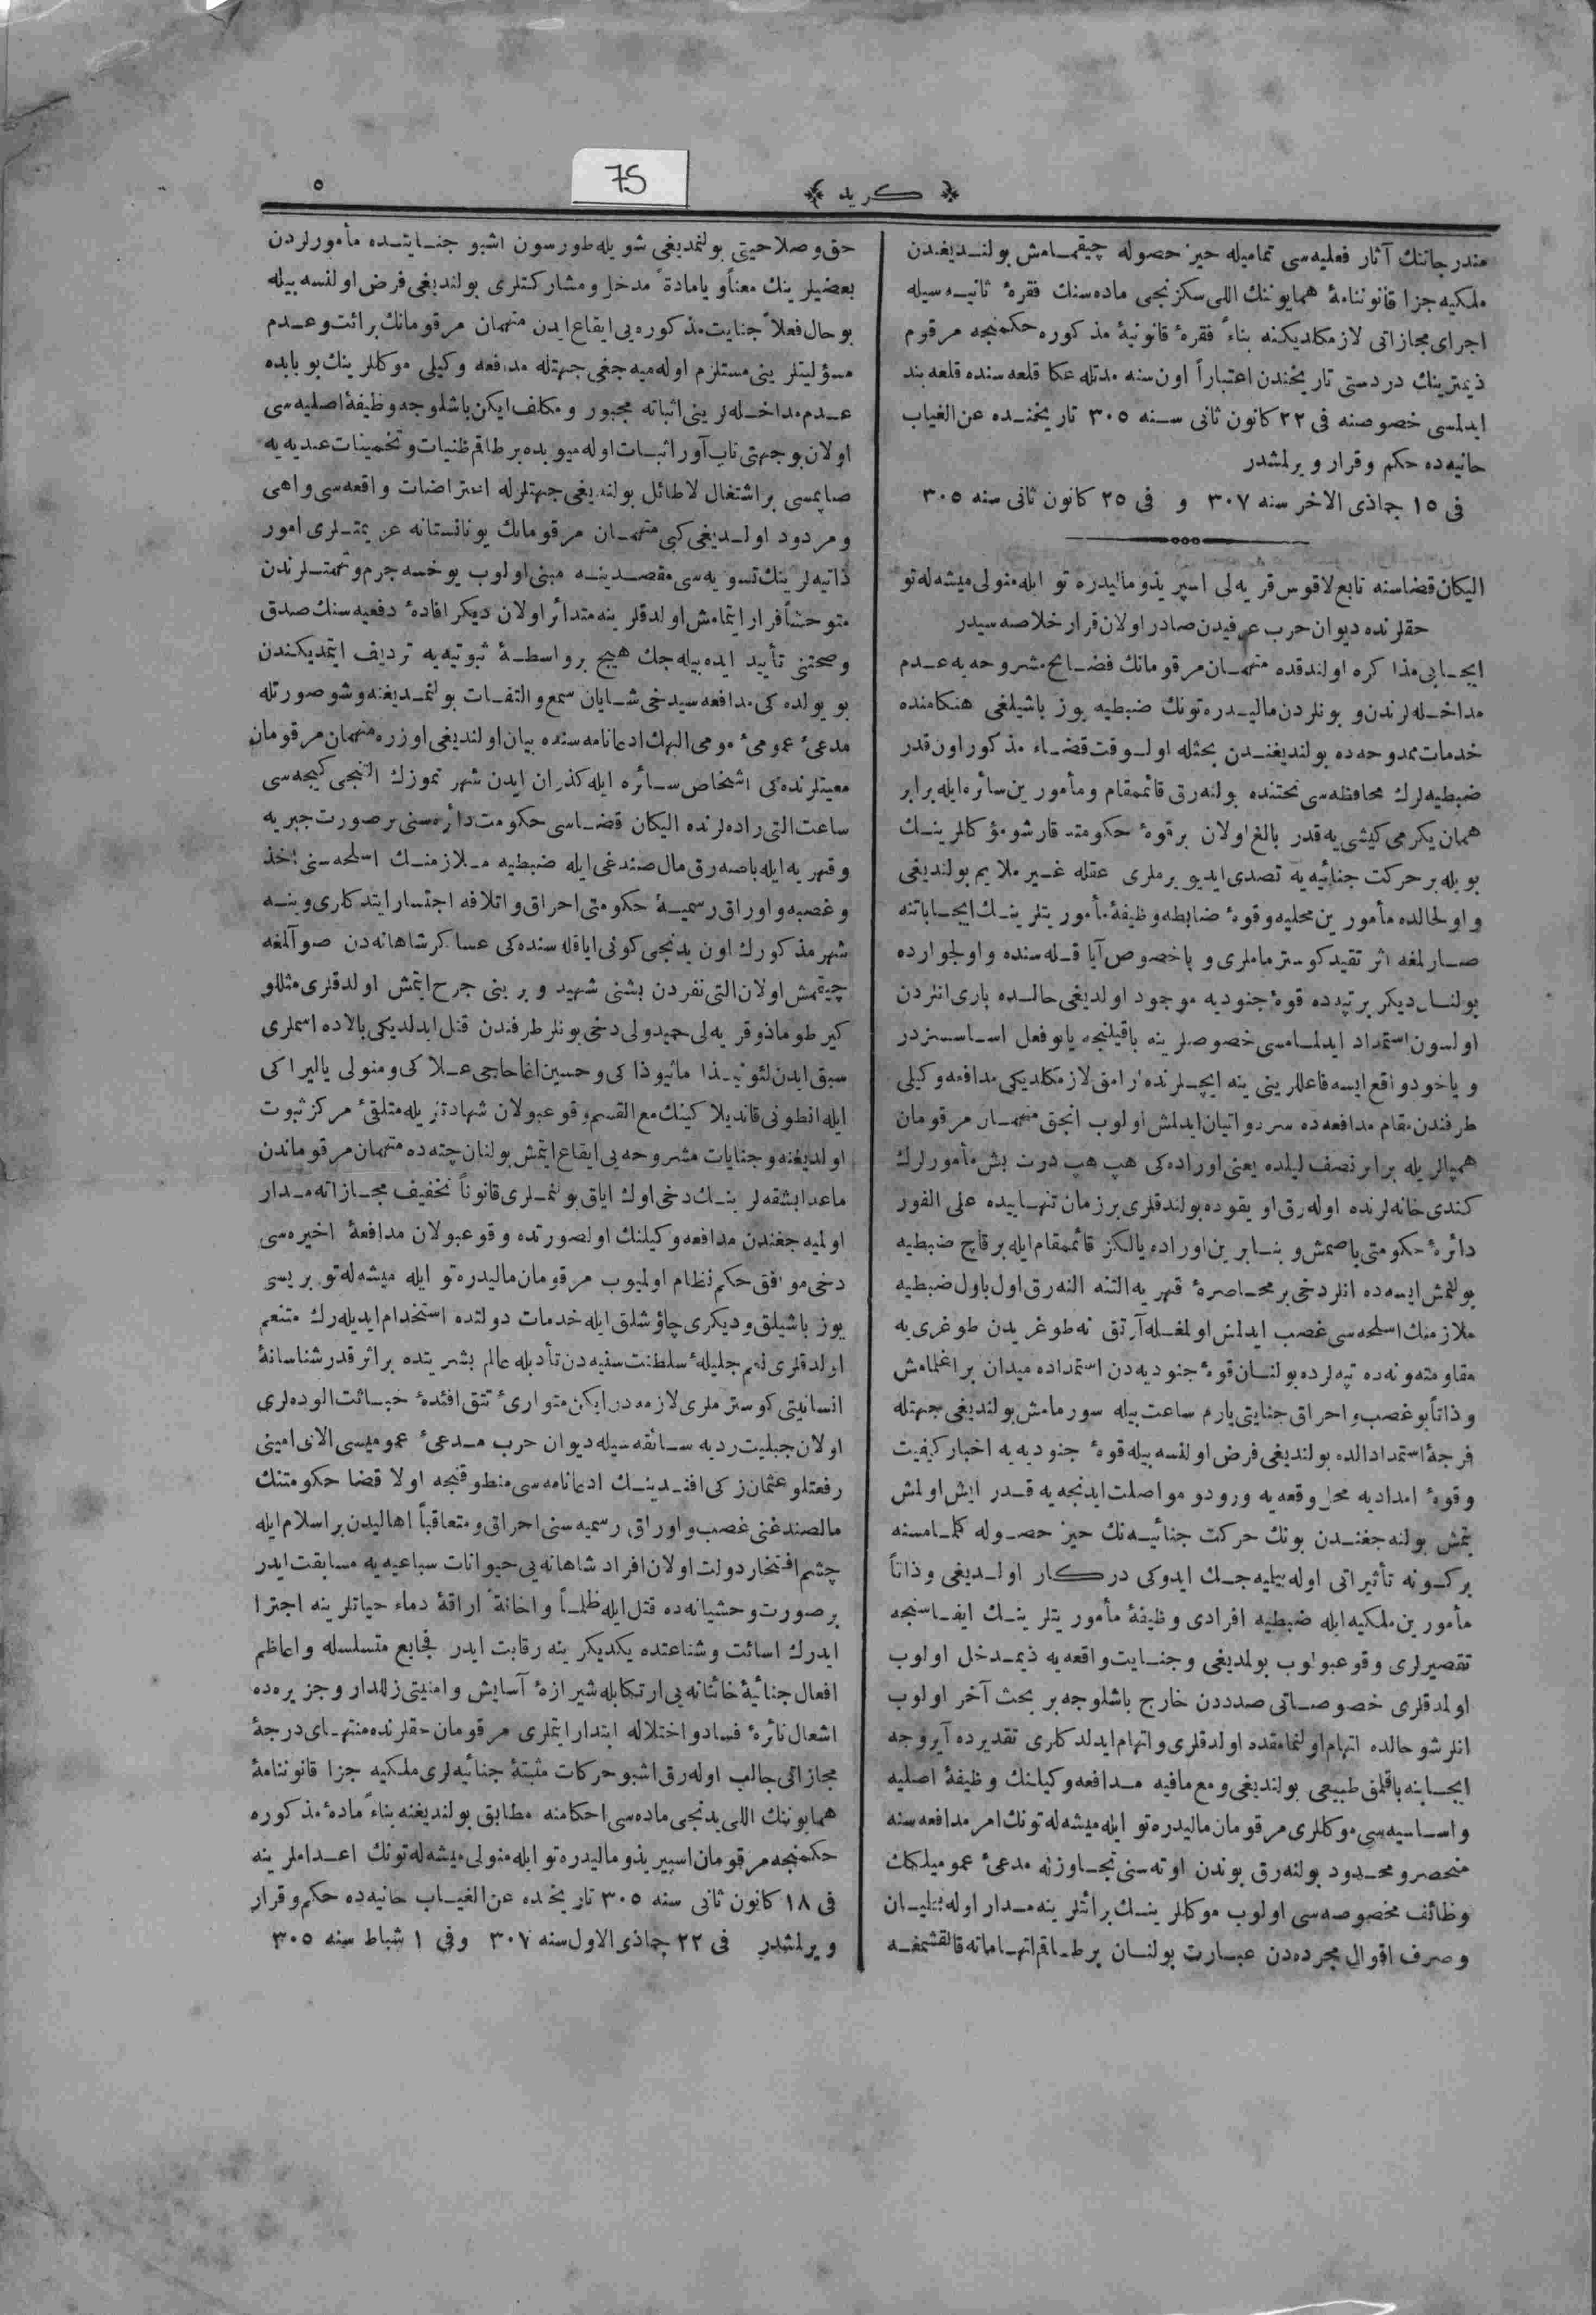 ٥
75
﴿ كريد ﴾
مندرجاتنك آثار فعليه‌سى تماميله حيز حصوله چيقمامش بولنديغندن
ملكيه جزا قانوننامهٔ همايوننك اللى سكزنجى ماده‌سنك فقرهٔ ثانيه‌سيله
اجراى مجازاتى لازمكلديكنه بناءً فقرهٔ قانونيهٔ مذكوره حكمنجه مرقوم
ذيمترينك دردستى تاريخندن اعتباراً اون سنه مدتله عكا قلعه‌سنده قلعه‌بند
ايدلمسى خصوصنه فى ٢٢ كانون ثانى سنه ٣٠٥ تاريخنده عن الغياب
حانيه‌ده حكم وقرار ويرلمشدر
فى ١٥ جماذى الاخر سنه ٣٠٧ و فى ٢٥ كانون ثانى سنه ٣٠٥
اليكان قضاسنه تابع لاقوس قريه‌لى اسپريذو ماليدره‌تو ايله منولى ميشه‌له‌تو
حقلرنده ديوان حرب عرفيدن صادر اولان قرار خلاصه‌سيدر
ايجابى مذاكره اولندقده متهمان مرقومانك فضايح مشروحه‌يه عدم
مداخله‌لرندن و بونلردن ماليدره‌تونك ضبطيه يوز باشيلغى هنكامنده
خدمات ممدوحه‌ده بولنديغندن بحثله اولوقت قضاء مذكور اون قدر
ضبطيه‌لرك محافظه‌سى تحتنده بولنه‌رق قائممقام ومأمورين سائره ايله برابر
همان يكرمى كيشى‌يه قدر بالغ اولان برقوهٔ حكومته قارشو مؤكللرينك
بويله بر حركت جنائيه‌يه تصدى ايديويرملرى عقله غير ملايم بولنديغى
و اولحالده مأمورين محليه وقوهٔ ضابطه وظيفهٔ مأموريتلرينك ايجاباتنه
صارلمغه اثر تقيد كوسترماملرى و باخصوص آيا قله‌سنده و اولجوارده
بولنان ديكر برتپه‌ده قوهٔ جنوديه موجود اولديغى حالده بارى انلردن
اولسون استمداد ايدلمامسى خصوصلرينه باقيلنجه يا بو فعل اساسسزدر
و ياخود واقع ايسه فاعللرينى ينه ايچلرنده ارامق لازمكلديكى مدافعه وكيلى
طرفندن مقام مدافعه‌ده سرد واتيان ايدلمش اولوب انجق متهمان مرقومان
همپالريله برابر نصف ليلده يعنى اوراده‌كى هپ هپ درت بش مأمورلرك
كندى خانه‌لرنده اوله‌رق اويقوده بولندقلرى برزمان تنهاييده على الفور
دائرهٔ حكومتى باصمش و بنابرين اوراده يالكز قائممقام ايله برقاچ ضبطيه
بولنمش ايسه‌ده انلر دخى بر محاصرهٔ قهريه التنه النه‌رق اول باول ضبطيه
ملازمنك اسلحه‌سى غصب ايدلمش اولمغله آرتق نه طوغريدن طوغرى‌يه
مقاومته ونه‌ده تپه‌لرده بولنان قوهٔ جنوديه‌دن استمداده ميدان براغلمامش
وذاتاً بو غصب و احراق جنايتى يارم ساعت بيله سورمامش بولنديغى جهتله
فرجهٔ استمداد الده بولنديغى فرض اولنسه بيله قوهٔ جنوديه‌يه اخبار كيفيت
وقوهٔ امداديه محل وقعه‌يه ورود و مواصلت ايدنجه‌يه قدر ايش اولمش
بتمش بولنه‌جغندن بونك حركت جنائيه‌نك حيز حصوله كلمامسنه
بركونه تأثيراتى اوله‌بيليه‌جك ايدوكى دركار اولديغى وذاتاً
مأمورين ملكيه ايله ضبطيه افرادى وظيفهٔ مأموريتلرينك ايفاسنجه
تقصيرلرى وقوعبولوب بولمديغى وجنايت واقعه‌يه ذيمدخل اولوب
اولمدقلرى خصوصاتى صدددن خارج باشلوجه بر بحث آخر اولوب
انلر شو حالده اتهام اولنمامقده اولدقلرى واتهام ايدلدكلرى تقديرده آيروجه
ايجابنه باقلمق طبيعى بولنديغى ومع مافيه مدافعه وكيلنك وظيفهٔ اصليه
واساسيه‌سى موكللرى مرقومان ماليدره‌تو ايله ميشه‌له‌تونك امر مدافعه‌سنه
منحصر ومحدود بولنه‌رق بوندن اوته‌سنى تجاوز نه مدعىٔ عموميلكك
وظائف مخصوصه‌سى اولوب موكللرينك برائتلرينه مدار اوله‌بيليان
وصرف اقوال مجرده‌دن عبارت بولنان برطاقم اتهاماته قالقشمغه
حق وصلاحيتى بولنمديغى شويله طورسون اشبو جنايتده مأمورلردن
بعضيلرينك معناً و يا مادةً مدخل ومشاركتلرى بولنديغى فرض اولنسه بيله
بوحال فعلاً جنايت مذكوره‌يى ايقاع ايدن متهمان مرقومانك برائت وعدم
مسؤليتلرينى مستلزم اوله‌ميه‌جغى جهتله مدافعه وكيلى موكللرينك بوبابده
عدم مداخله‌لرينى اثباته مجبور و مكلف ايكن باشلوجه وظيفهٔ اصليه‌سى
اولان بوجهتى تاب‌آور اثبات اوله‌ميوب ده برطاقم ظنيات وتخمينات عنديه‌يه
صاپمسى براشتغال لاطائل بولنديغى جهتلرله اعتراضات واقعه‌سى واهى
ومردود اولديغى كبى متهمان مرقومانك يونانستانه عزيمتلرى امور
ذاتيه‌لرينك تسويه‌سى مقصدينه مبنى اولوب يوخسه جرم و تهمتلرندن
متوحشاً فرار ايتمامش اولدقلرينه متدائر اولان ديكر افادهٔ دفعيه‌سنك صدق
وصحتنى تأييد ايده‌بيله‌جك هيچ برواسطهٔ ثبوتيه‌يه ترديف ايتمديكندن
بويولده‌كى مدافعه‌سيدخى شايان سمع والتفات بولنمديغنه وشو صورتله
مدعىٔ عمومىٔ مومى اليهك ادعانامه‌سنده بيان اولنديغى اوزره متهمان مرقومان
معيتلرنده‌كى اشخاص سائره ايله كذران ايدن شهر تموزك النجى كيجه‌سى
ساعت التى راده‌لرنده اليكان قضاسى حكومت دائره‌سنى برصورت جبريه
وقهريه ايله باصه‌رق مال صندغى ايله ضبطيه ملازمنك اسلحه‌سنى اخذ
وغصبه واوراق رسميهٔ حكومتى احراق واتلافه اجتسار ايتدكلرى وينه
شهر مذكورك اون يدنجى كونى اياقله‌سنده‌كى عساكر شاهانه‌دن صو آلمغه
چيقمش اولان التى نفردن بشنى شهيد و برينى جرح ايتمش اولدقلرى مثللو
كيرطوماذو قريه‌لى حميدولى دخى بونلر طرفندن قتل ايدلديكى بالاده اسملرى
سبق ايدن لئونيذا ماثيوذاكى وحسين اغا حاجى علاكى ومنولى ياليراكى
ايله انطونى قانديلاكينك مع القسم وقوعبولان شهادتلريله متلقىٔ مركز ثبوت
اولديغنه وجنايات مشروحه‌يى ايقاع ايتمش بولنان چته‌ده متهمان مرقوماندن
ماعدا بشقه‌لرينك دخى اوك اياق بولنملرى قانوناً تخفيف مجازاته مدار
اولميه‌جغندن مدافعه وكيلنك اولصورتده وقوعبولان مدافعهٔ اخيره‌سى
دخى موافق حكم نظام اولميوب مرقومان ماليدره‌تو ايله ميشه‌له‌تو بريسى
يوز باشيلق وديكرى چاؤشلق ايله خدمات دولتده استخدام ايديله‌رك متنعم
اولدقلرى نعم جليلهٔ سلطنت سنيه‌دن تأدبله عالم بشريتده براثر قدرشناسانهٔ
انسانيتى كوسترملرى لازمه‌دن ايكن متوارىٔ تتق افئدهٔ خباثت الوده‌لرى
اولان جبليت رديه سائقه‌سيله ديوان حرب مدعىٔ عموميسى الاى امينى
رفعتلو عثمان زكى افندينك ادعانامه‌سى منطوقنجه اولا قضا حكومتنك
مالصندغنى غصب واوراق رسميه‌سنى احراق ومتعاقباً اهاليدن براسلام ايله
چشم افتخار دولت اولان افراد شاهانه‌يى حيوانات سباعيه‌يه مسابقت ايدر
برصورت وحشيانه‌ده قتل ايله ظلماً واخانةً اراقهٔ دماء حياتلرينه اجترا
ايدرك اسائت وشناعتده يكديكرينه رقابت ايدر فجايع متسلسله واعاظم
افعال جنائيهٔ خائنانه‌يى ارتكابله شيرازهٔ آسايش وامنيتى زهدار وجزيره‌ده
اشعال نائرهٔ فساد و اختلاله ابتدار ايتملرى مرقومان حقلرنده منتهاى درجهٔ
مجازاتى جالب اوله‌رق اشبو حركات مثبتهٔ جنائيه‌لرى ملكيه جزا قانوننامهٔ
همايوننك اللى يدنجى ماده‌سى احكامنه مطابق بولنديغنه بناءً مادهٔ مذكوره
حكمنجه مرقومان اسپيريذو ماليدره‌تو ايله منولى ميشه‌له‌تونك اعداملرينه
فى ١٨ كانون ثانى سنه ٣٠٥ تاريخنده عن الغياب حانيه‌ده حكم وقرار
ويرلمشدر فى ٢٢ جماذى الاول سنه ٣٠٧ وفى ١ شباط سنه ٣٠٥